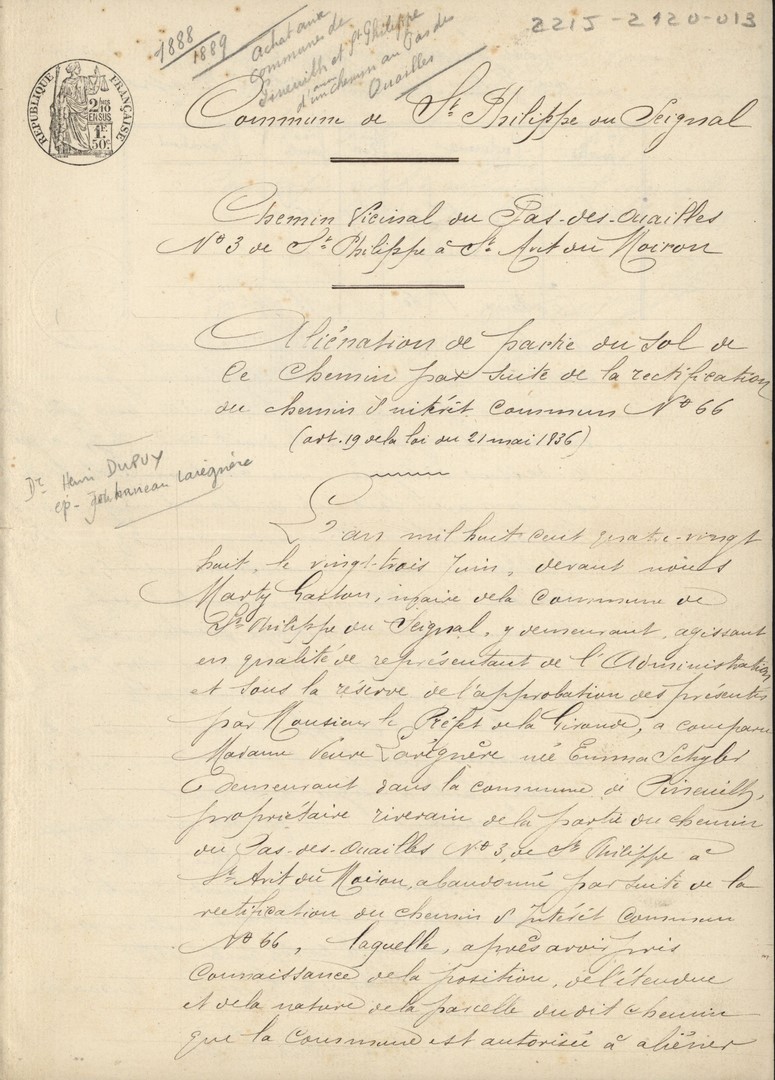 2215-2120-013
1888
1889
Achat aux
communes de
Pineuilh et St Philippe
d'un chemin au Pas des
Ouailles
RÉPUBLIQUE FRANÇAISE
2/10
EN SUS
1F
50c
Commune de St Philippe du Seignal
Chemin Vicinal du Pas-des-Ouailles
No 3 de St Philippe à St Avit du Moiron
Aliénation de partie du sol de
ce chemin par suite de la rectification
du chemin d'intérêt commun No 66
(art. 19 de la loi du 21 mai 1836)
Dr Henri DUPUY
ep- Larégnère
L'an mil huit cent quatre-vingt
huit, le vingt-trois Juin, devant nous
Marty Gaston, maire de la commune de
St Philippe du Seignal, y demeurant, agissant
en qualité de représentant de l'Administration
et sous la réserve de l'approbation des présentes
par Monsieur le Préfet de la Gironde, a comparu
Madame Veuve Larégnère née Emma Schyler
demeurant dans la commune de Pineuilh,
propriétaire riverain de la partie du chemin
du Pas-des-Ouailles No 3, de St Philippe à
St Avit du Moiron, abandonné par suite de la
rectification du chemin d'Intérêt Commun
No 66, laquelle, après avoir pris
connaissance de la position, de l'étendue
et de la nature de la parcelle dudit chemin
que la commune est autorisée à aliéner